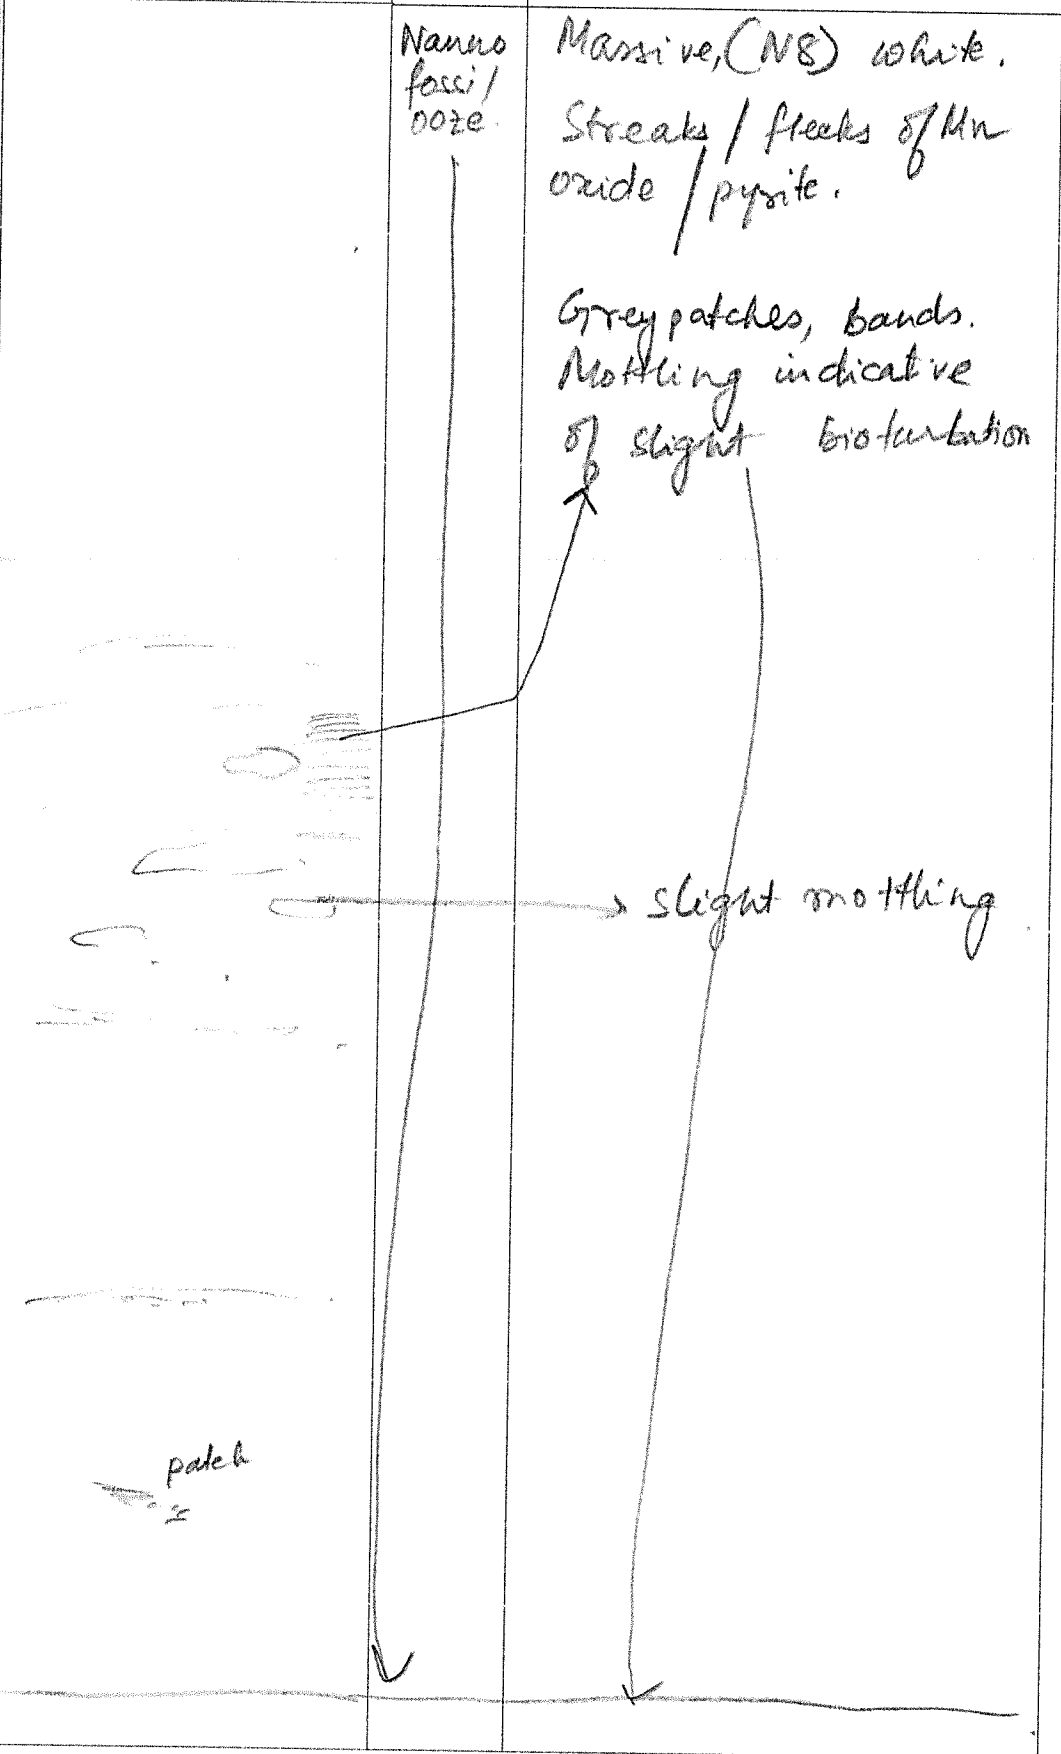 Nanno
fossil
ooze.
Massive, (N8) white.
Streaks / flecks of Mn
oxide / pyrite.
Grey patches, bands.
Mottling indicative
of slight bioturbation
slight mottling
patch